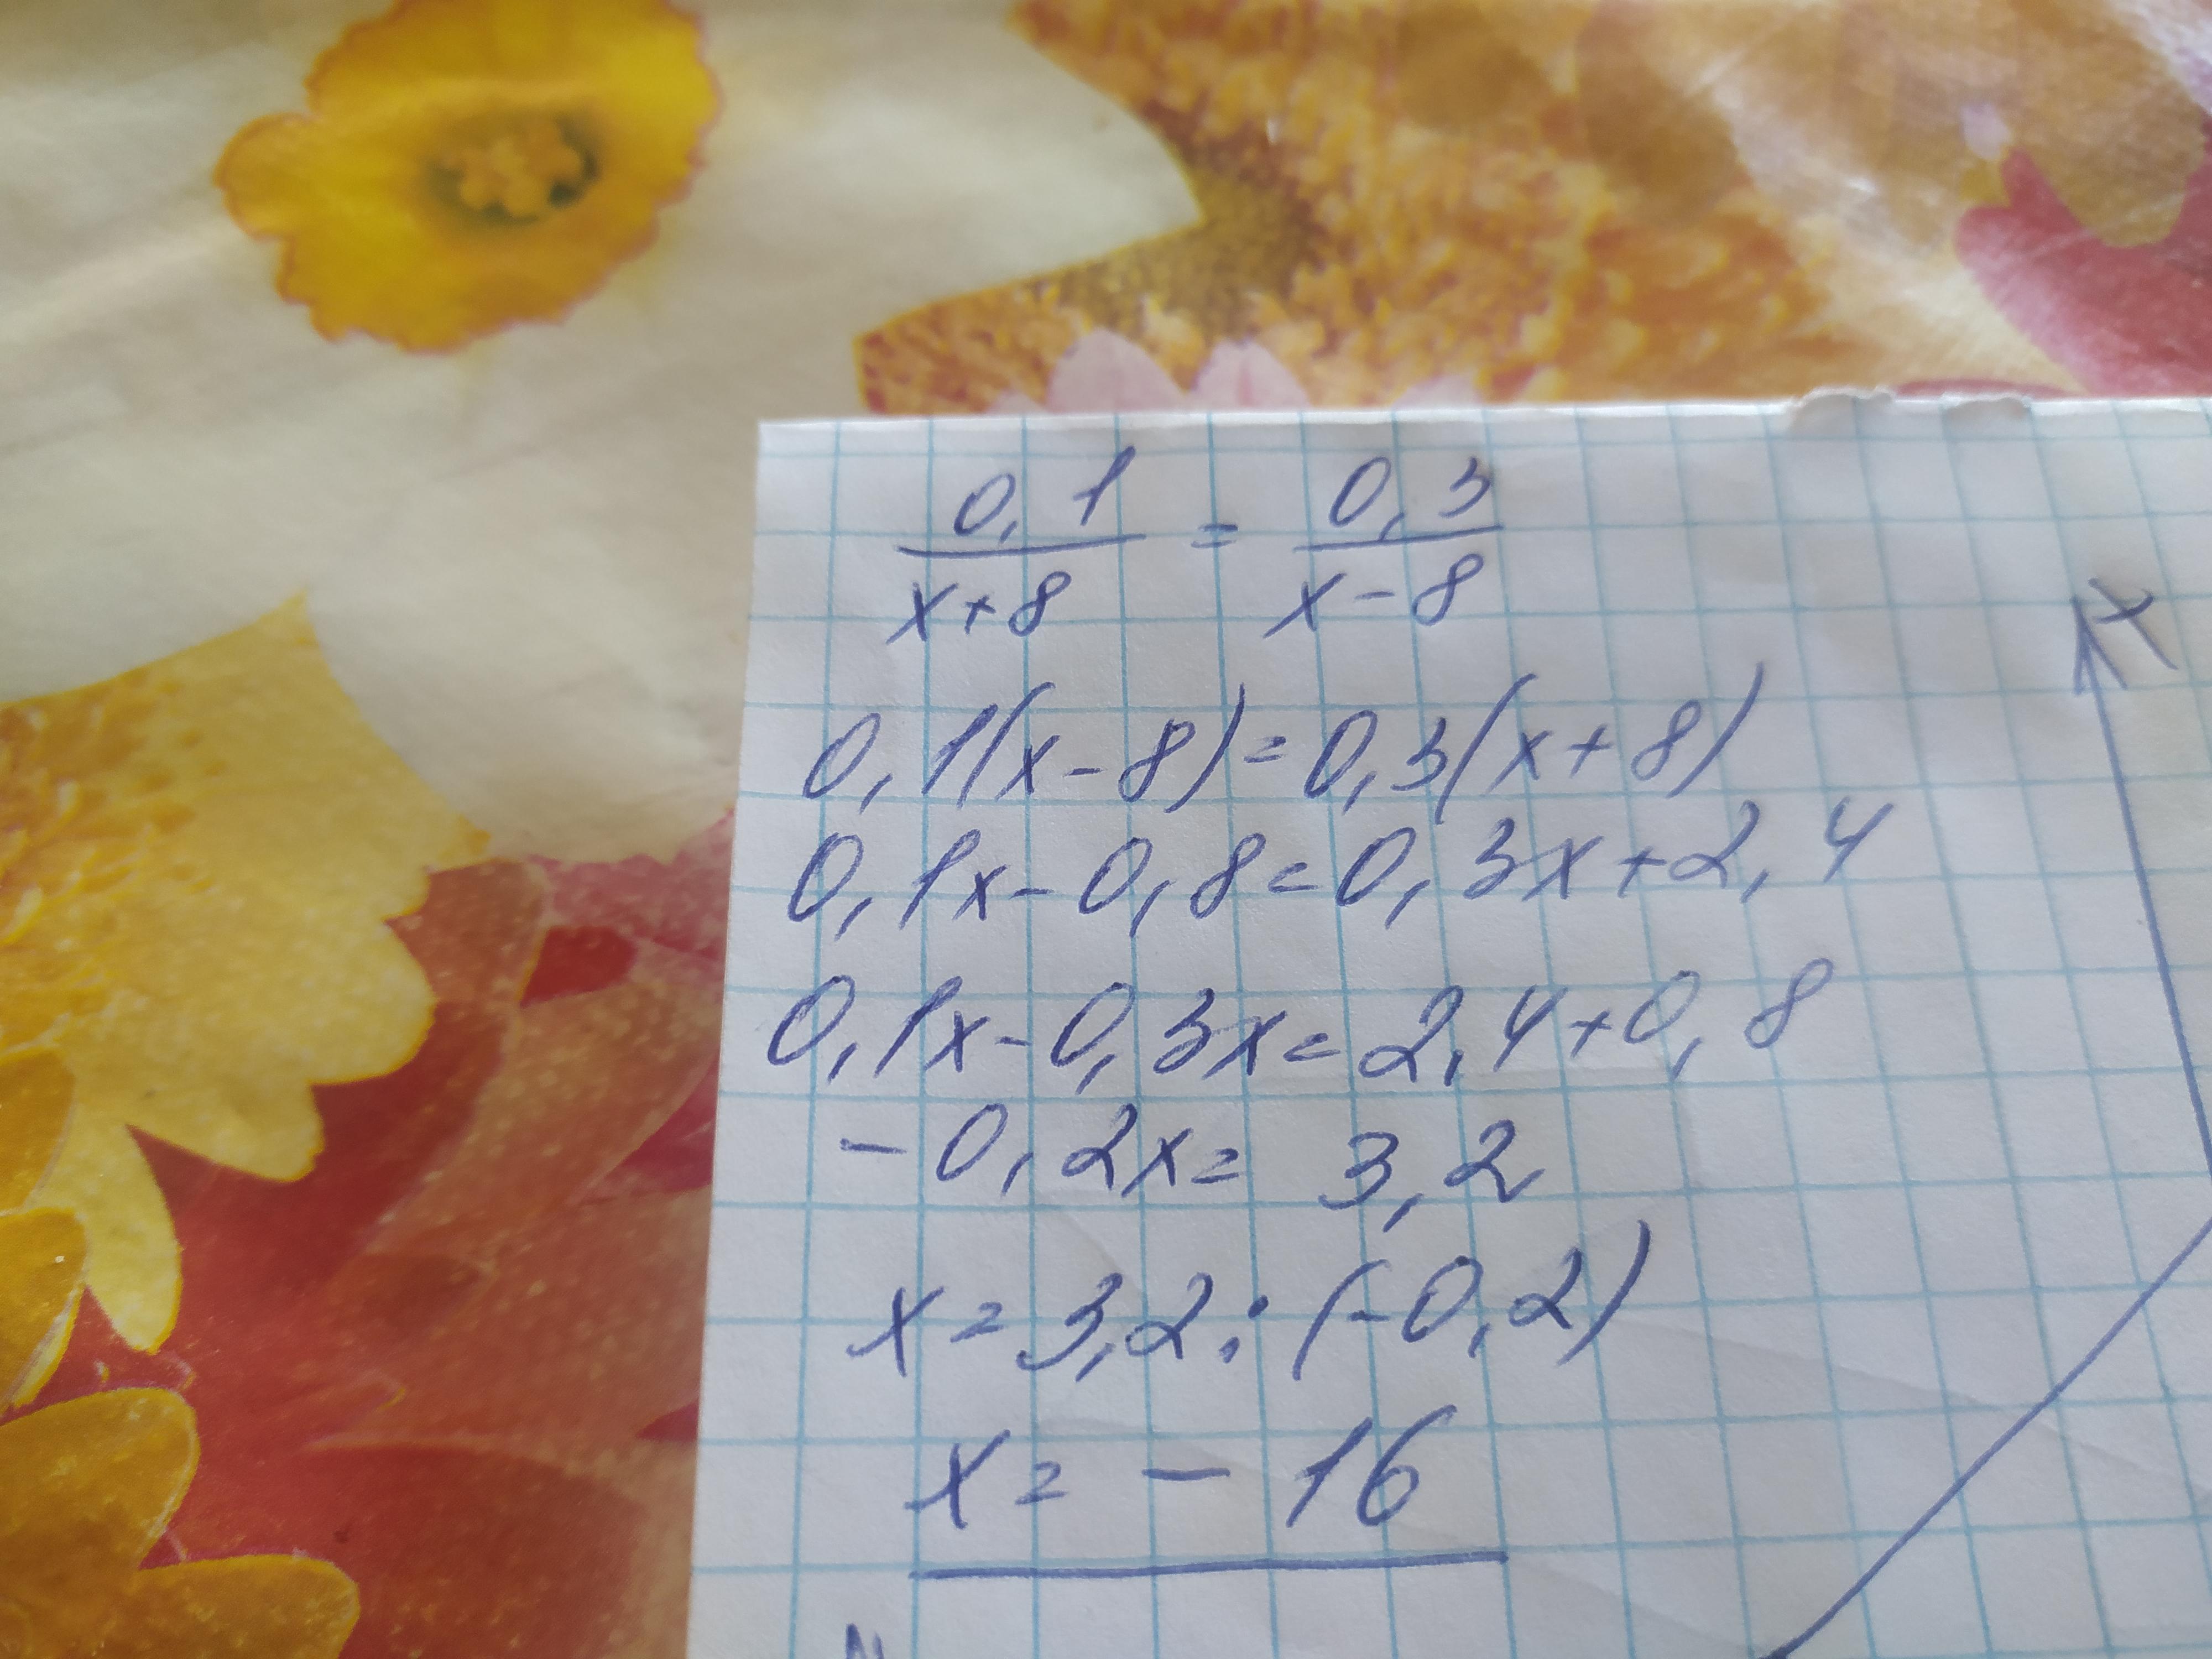 0,1/(x+8) = 0,3/(x-8)
0,1(x-8)=0,3(x+8)
0,1x-0,8=0,3x+2,4
0,1x-0,3x=2,4+0,8
-0,2x= 3,2
x=3,2:(-0,2)
x= - 16